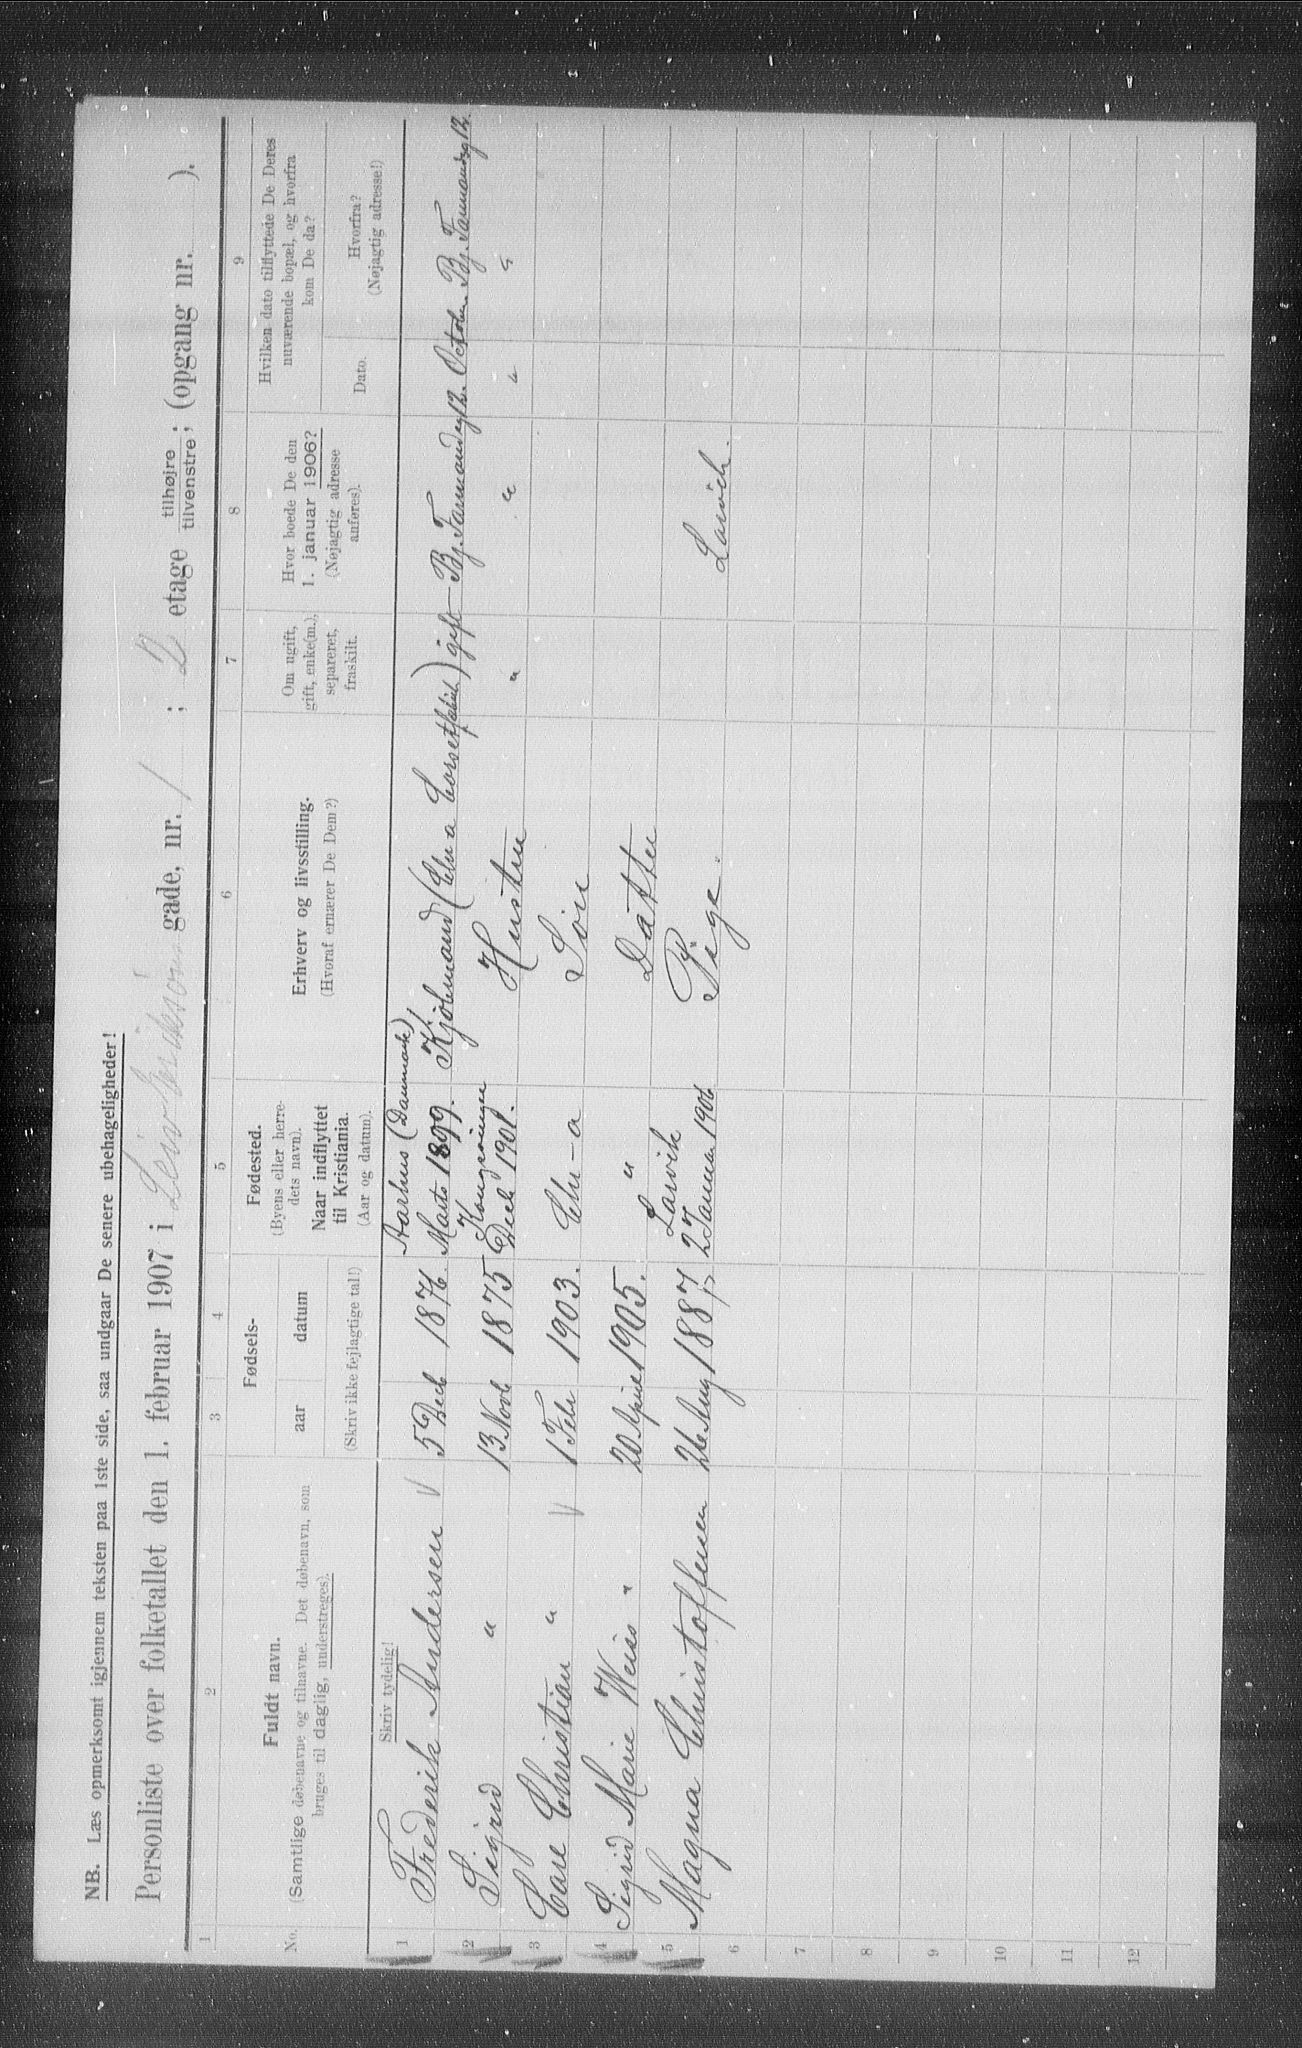 NB. Læs opmerksomt igjennem teksten paa 1ste side, saa undgaar De senere ubehageligheder!
Personliste over folketallet den 1. februar 1907 i Leiv Eriksøns gade, nr. 1 ; 2 etage tilhøjre / tilvenstre; (opgang nr. ).
1 2 3 4 5 6 7 8 9
No.
Fuldt navn.
(Samtlige døbenavne og tilnavne. Det døbenavn, som
bruges til daglig, understreges).
Skriv tydelig!
Fødsels-
aar datum
(Skriv ikke fejlagtige tal!)
Fødested.
(Byens eller herre-
dets navn).
Naar indflyttet
til Kristiania.
(Aar og datum).
Erhverv og livsstilling.
(Hvoraf ernærer De Dem?)
Om ugift,
gift, enke(m.),
separeret,
fraskilt.
Hvor boede De den
1. januar 1906?
(Nøjagtig adresse
anføres).
Hvilken dato tilflyttede De Deres
nuværende bopæl, og hvorfra
kom De da?
Dato.
Hvorfra?
(Nøjagtig adresse!)
Aarhus (Danmark)
1 Frederik Andersen 5 Decb 1876. Marts 1899. Kjöbmand (Chr a Corsetfabrik) gift Bj. Farmandsg 12. October Bj. Farmandsg 12.
Kongsvinger
2 Sigrid " 13 Novb 1875 Decb 1901. Hustru " " " "
3 Carl Christian " 1 Feb 1903. Chr-a Sön
4 Sigrid Marie Weiss " 20 April 1905. " Datter
Larvik
5 Magna Christoffersen 26 Aug 1887 2 Januar 1906 Pige. Larvik.
6
7
8
9
10
11
12